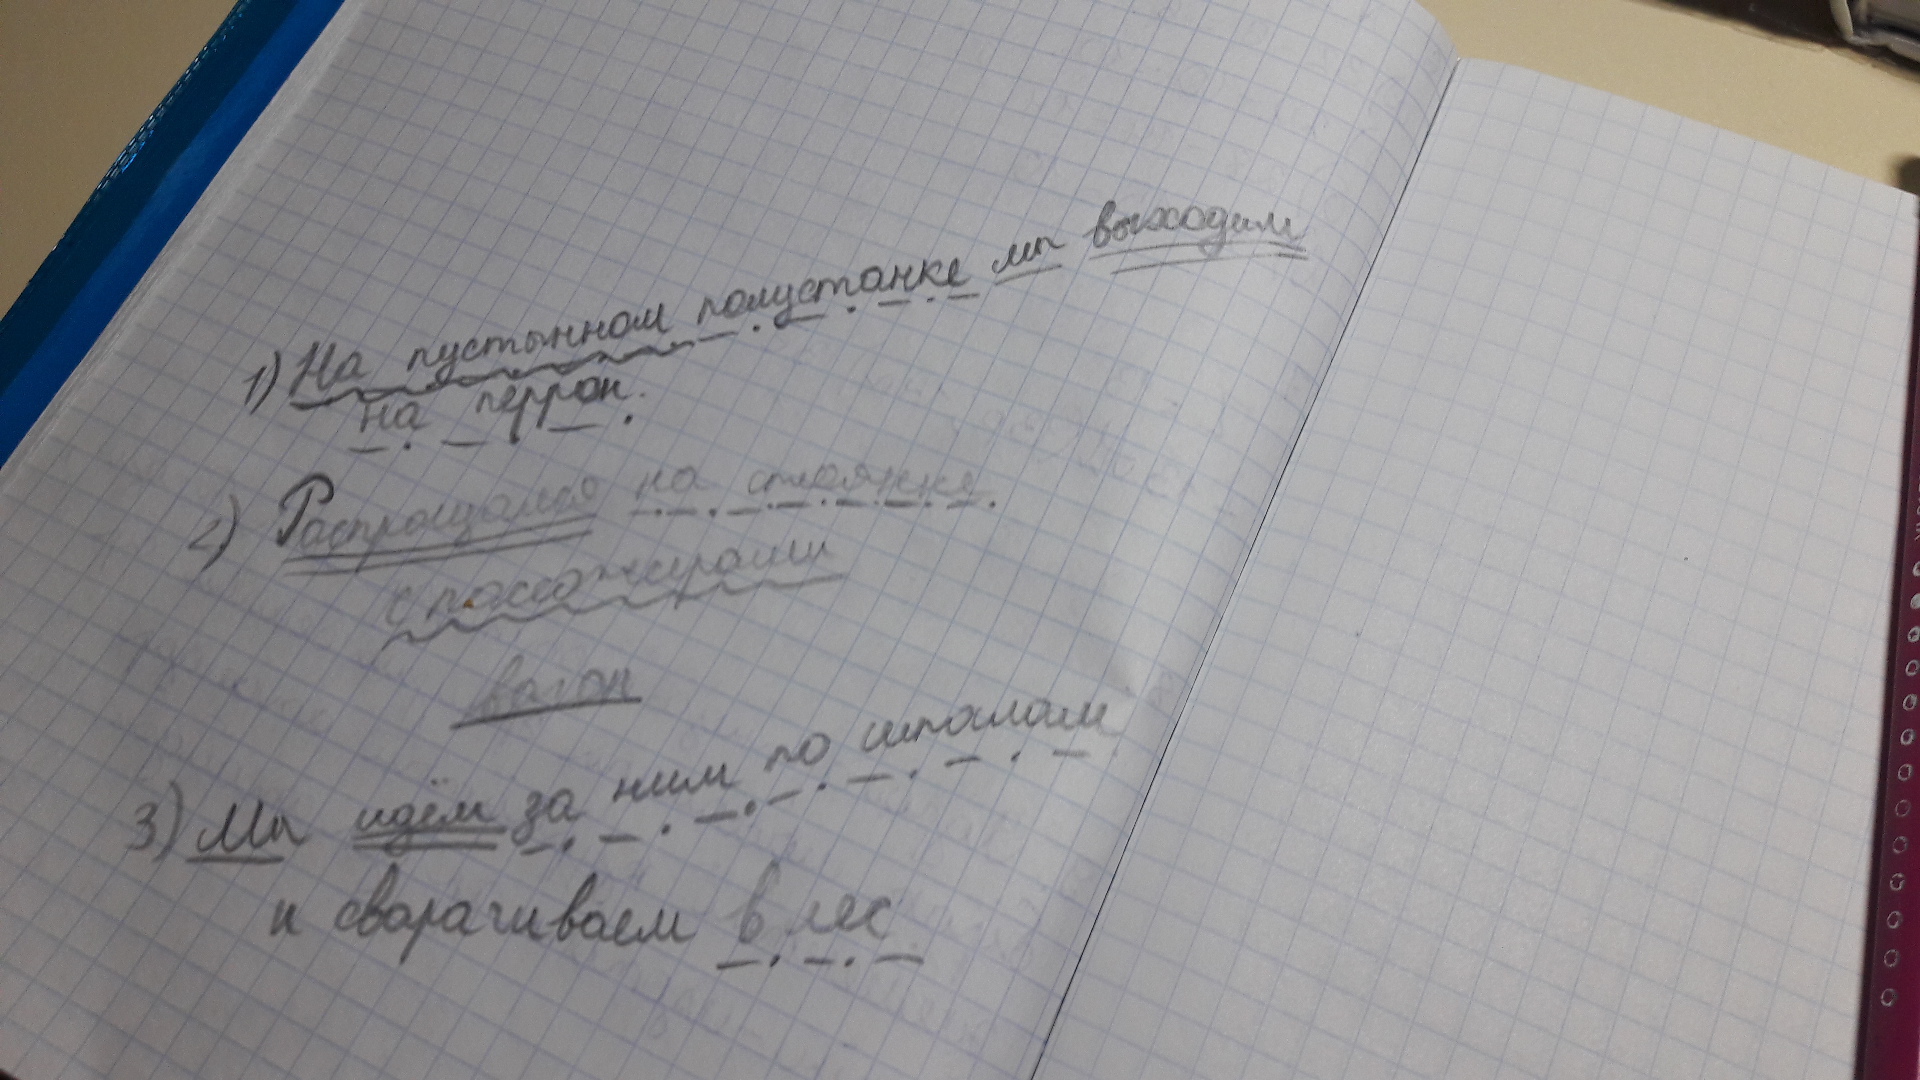 1) На пустынном полустанке мы выходим
на перрон.
2) Распрощался на стоянке
с пассажирами
вагон
3) Мы идём за ним по шпалам
и сварачиваем в лес